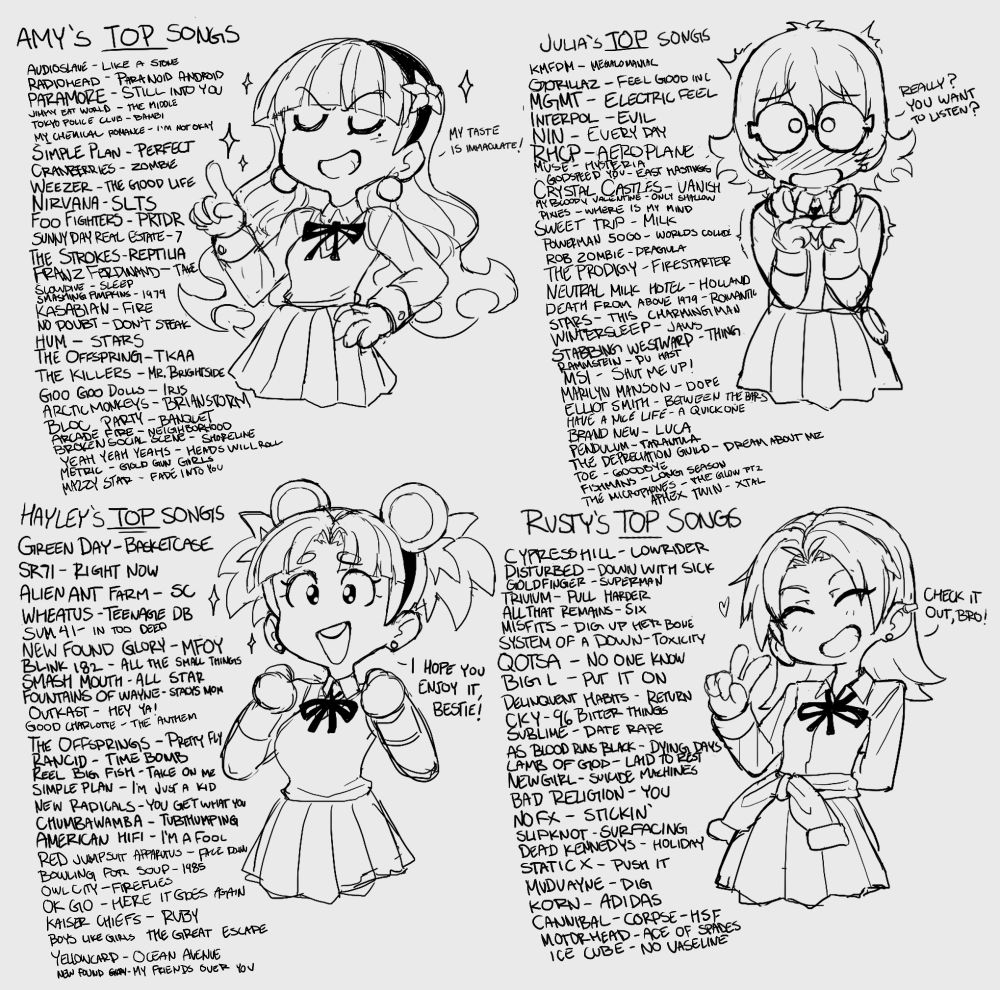 AMY'S TOP SONGS
AUDIOSLAVE - LIKE A STONE
RADIOHEAD - PARANOID ANDROID
PARAMORE - STILL INTO YOU
JIMMY EAT WORLD - THE MIDDLE
TOKYO POLICE CLUB - BAMBI
MY CHEMICAL ROMANCE - I'M NOT OKAY
SIMPLE PLAN - PERFECT
CRANBERRIES - ZOMBIE
WEEZER - THE GOOD LIFE
NIRVANA - SLTS
FOO FIGHTERS - PRTDR
SUNNY DAY REAL ESTATE - 7
THE STROKES - REPTILIA
FRANZ FERDINAND - TAKE
SLOWDIVE - SLEEP
SMASHING PUMPKINS - 1979
KASABIAN - FIRE
NO DOUBT - DON'T SPEAK
HUM - STARS
THE OFFSPRING - TKAA
THE KILLERS - MR. BRIGHTSIDE
GOO GOO DOLLS - IRIS
ARCTIC MONKEYS - BRIANSTORM
BLOC PARTY - BANQUET
ARCADE FIRE - NEIGHBORHOOD
BROKEN SOCIAL SCENE - SHORELINE
YEAH YEAH YEAHS - HEADS WILL ROLL
METRIC - GOLD GUN GIRLS
MAZZY STAR - FADE INTO YOU
MY TASTE
IS IMMACULATE!
JULIA'S TOP SONGS
KMFDM - MEGALOMANIAC
GORILLAZ - FEEL GOOD INC
MGMT - ELECTRIC FEEL
INTERPOL - EVIL
NIN - EVERY DAY
RHCP - AEROPLANE
MUSE - HYSTERIA
GODSPEED YOU - EAST HASTINGS
CRYSTAL CASTLES - VANISH
MY BLOODY VALENTINE - ONLY SHALLOW
PIXIES - WHERE IS MY MIND
SWEET TRIP - MILK
POWERMAN 5000 - WORLDS COLLIDE
ROB ZOMBIE - DRAGULA
THE PRODIGY - FIRESTARTER
NEUTRAL MILK HOTEL - HOLLAND
DEATH FROM ABOVE 1979 - ROMANTIC
STARS - THIS CHARMING MAN
WINTERSLEEP - JAWS
STABBING WESTWARD - THING
RAMMSTEIN - DU HAST
MSI - SHUT ME UP!
MARILYN MANSON - DOPE
ELLIOT SMITH - BETWEEN THE BARS
HAVE A NICE LIFE - A QUICK ONE
BRAND NEW - LUCA
PENDULUM - TARANTULA
THE DEPRECIATION GUILD - DREAM ABOUT ME
TOE - GOODBYE
FISHMANS - LONG SEASON
THE MICROPHONES - THE GLOW PT2
APHEX TWIN - XTAL
REALLY?
YOU WANT
TO LISTEN?
HAYLEY'S TOP SONGS
GREEN DAY - BASKETCASE
SR71 - RIGHT NOW
ALIEN ANT FARM - SC
WHEATUS - TEENAGE DB
SUM 41 - IN TOO DEEP
NEW FOUND GLORY - MFOY
BLINK 182 - ALL THE SMALL THINGS
SMASH MOUTH - ALL STAR
FOUNTAINS OF WAYNE - STACIS MOM
OUTKAST - HEY YA!
GOOD CHARLOTTE - THE ANTHEM
THE OFFSPRINGS - PRETTY FLY
RANCID - TIME BOMB
REEL BIG FISH - TAKE ON ME
SIMPLE PLAN - I'M JUST A KID
NEW RADICALS - YOU GET WHAT YOU
CHUMBAWAMBA - TUBTHUMPING
AMERICAN HIFI - I'M A FOOL
RED JUMPSUIT APPARATUS - FACE DOWN
BOWLING FOR SOUP - 1985
OWL CITY - FIREFLIES
OK GO - HERE IT GOES AGAIN
KAISER CHIEFS - RUBY
BOYS LIKE GIRLS THE GREAT ESCAPE
YELLOWCARD - OCEAN AVENUE
NEW FOUND GLORY - MY FRIENDS OVER YOU
I HOPE YOU
ENJOY IT,
BESTIE!
RUSTY'S TOP SONGS
CYPRESS HILL - LOWRIDER
DISTURBED - DOWN WITH SICK
GOLDFINGER - SUPERMAN
TRIVIUM - PULL HARDER
ALL THAT REMAINS - SIX
MISFITS - DIG UP HER BONE
SYSTEM OF A DOWN - TOXICITY
QOTSA - NO ONE KNOW
BIG L - PUT IT ON
DELINQUENT HABITS - RETURN
CKY - 96 BITTER THINGS
SUBLIME - DATE RAPE
AS BLOOD RUNS BLACK - DYING DAYS
LAMB OF GOD - LAID TO REST
NEW GIRL - SUICIDE MACHINES
BAD RELIGION - YOU
NOFX - STICKIN'
SLIPKNOT - SURFACING
DEAD KENNEDYS - HOLIDAY
STATIC X - PUSH IT
MUDVAYNE - DIG
KORN - ADIDAS
CANNIBAL - CORPSE - HSF
MOTORHEAD - ACE OF SPADES
ICE CUBE - NO VASELINE
CHECK IT
OUT, BRO!